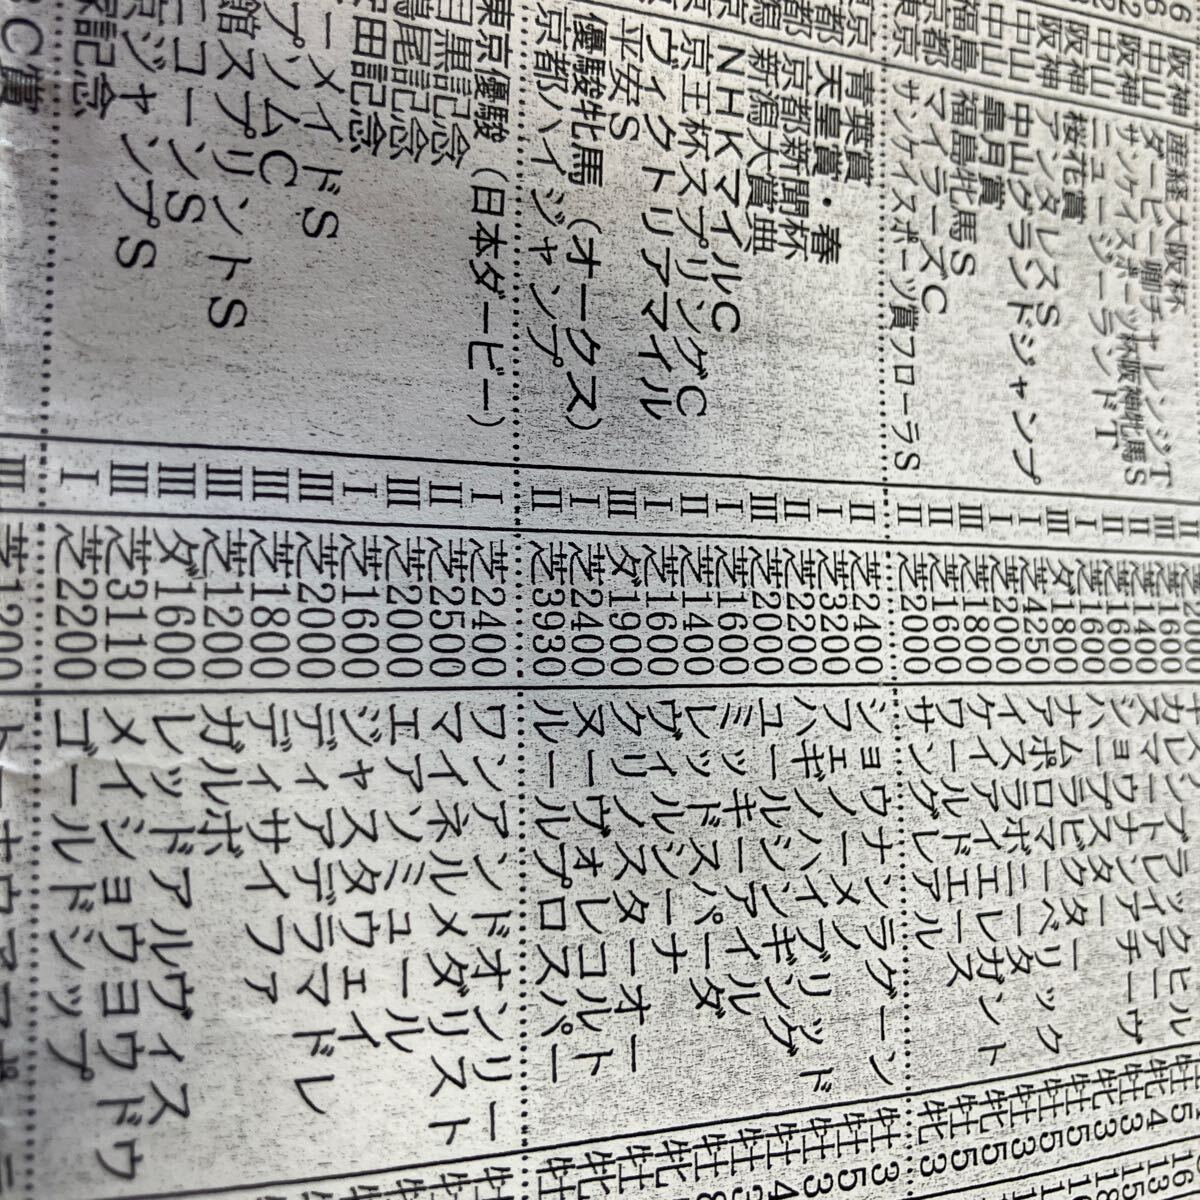 阪神 産経大阪杯
ダービー卿チャレンジT Ⅲ 芝1600 カレンブラックヒル 牡5
阪神 サンケイスポーツ杯阪神牝馬S Ⅱ 芝1400 スマートレイアー 牝4
中山 ニュージーランドT Ⅱ 芝1600 ショウナンアチーヴ 牡3
阪神 桜花賞 Ⅰ 芝1600 ハープスター 牝3
阪神 アンタレスS Ⅲ ダ1800 ナムラビクター 牡5
中山 中山グランドジャンプ Ⅰ 芝4250 アポロマーベリック 牡5
中山 皐月賞 Ⅰ 芝2000 イスラボニータ 牡3
福島 福島牝馬S Ⅲ 芝1800 ケイアイエレガント 牝5
京都 マイラーズC Ⅱ 芝1600 ワールドエース 牡5
東京 サンケイスポーツ賞フローラS Ⅱ 芝2000 サングレアル 牝3
東京 青葉賞 Ⅱ 芝2400 ショウナンラグーン 牡3
京都 天皇賞・春 Ⅰ 芝3200 フェノーメノ 牡5
京都 京都新聞杯 Ⅱ 芝2200 ハギノハイブリッド 牡3
新潟大賞典 Ⅲ 芝2000 ユールシンギング 牡4
NHKマイルC Ⅰ 芝1600 ミッキーアイル 牡3
京王杯スプリングC Ⅱ 芝1400 レッドスパーダ 牡8
ヴィクトリアマイル Ⅰ 芝1600 ヴィルシーナ
平安S Ⅲ ダ1900 クリノスターオー
優駿牝馬（オークス） Ⅰ 芝2400 ヌーヴォレコルト
京都ハイジャンプ Ⅱ 芝3930 ルールプロスパー
東京優駿（日本ダービー） Ⅰ 芝2400 ワンアンドオンリー
目黒記念 Ⅱ 芝2500 マイネルメダリスト
鳴尾記念 Ⅲ 芝2000 エアソミュール
田記念 Ⅰ 芝1600 ジャスタウェイ
ーメイドS Ⅲ 芝2000 ディアデラマドレ
プソムC Ⅲ 芝1800 ディサイファ
館スプリントS Ⅲ 芝1200 ガルボ
ニコーンS Ⅲ ダ1600 レッドアルヴィス
京ジャンプS Ⅲ 芝3110 メイショウヨウドウ
記念 Ⅰ 芝2200 ゴールドシップ
BC賞 Ⅲ 芝1200